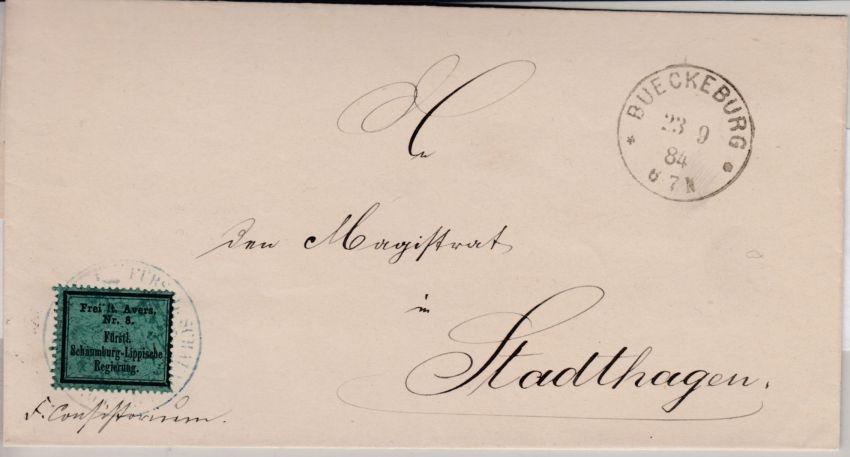 An
BUECKEBURG
23 9
84
6 7 N
den Magistrat
in
Stadthagen.
Frei lt. Avers.
Nr. 8.
Fürstl.
Schaumburg-Lippische
Regierung.
F. Consistorium.